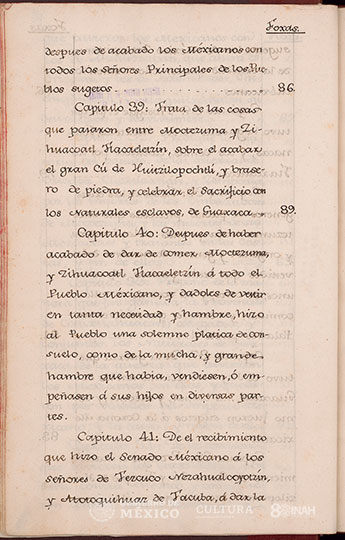 Foxas.
despues de acabado los Mexicanos con
todos los Señores Principales de los Pue
blos sugetos . . . . . . . . . . . . . . . . . . 86.
Capitulo 39: Trata de las cosas
que pasaron entre Moctezuma, y Zi-
huacoatl Tlacaeletzin, sobre el acabar
el gran Cú de Huitzilopochtli, y brase-
ro de piedra, y celebrar el Sacrificio con
los Naturales esclavos, de Guaxaca . . 89.
Capitulo 40: Despues de haber
acabado de dar de comer Moctezuma,
y Zihuacoatl Tlacaeletzin á todo el
Pueblo Méxicano, y dadoles de vestir
en tanta necesidad y hambre, hizo
al Pueblo una solemne platica de con-
suelo, como de la mucha, y grande
hambre que habia, vendiesen, ó em-
peñasen á sus hijos en diversas par-
tes.
Capitulo 41: De el recibimiento
que hizo el Senado Méxicano á los
señores de Tezcuco Nezahualcoyotzin,
y Totoquihuaz de Tacuba, á dar la
MÉXICO
CULTURA
INAH